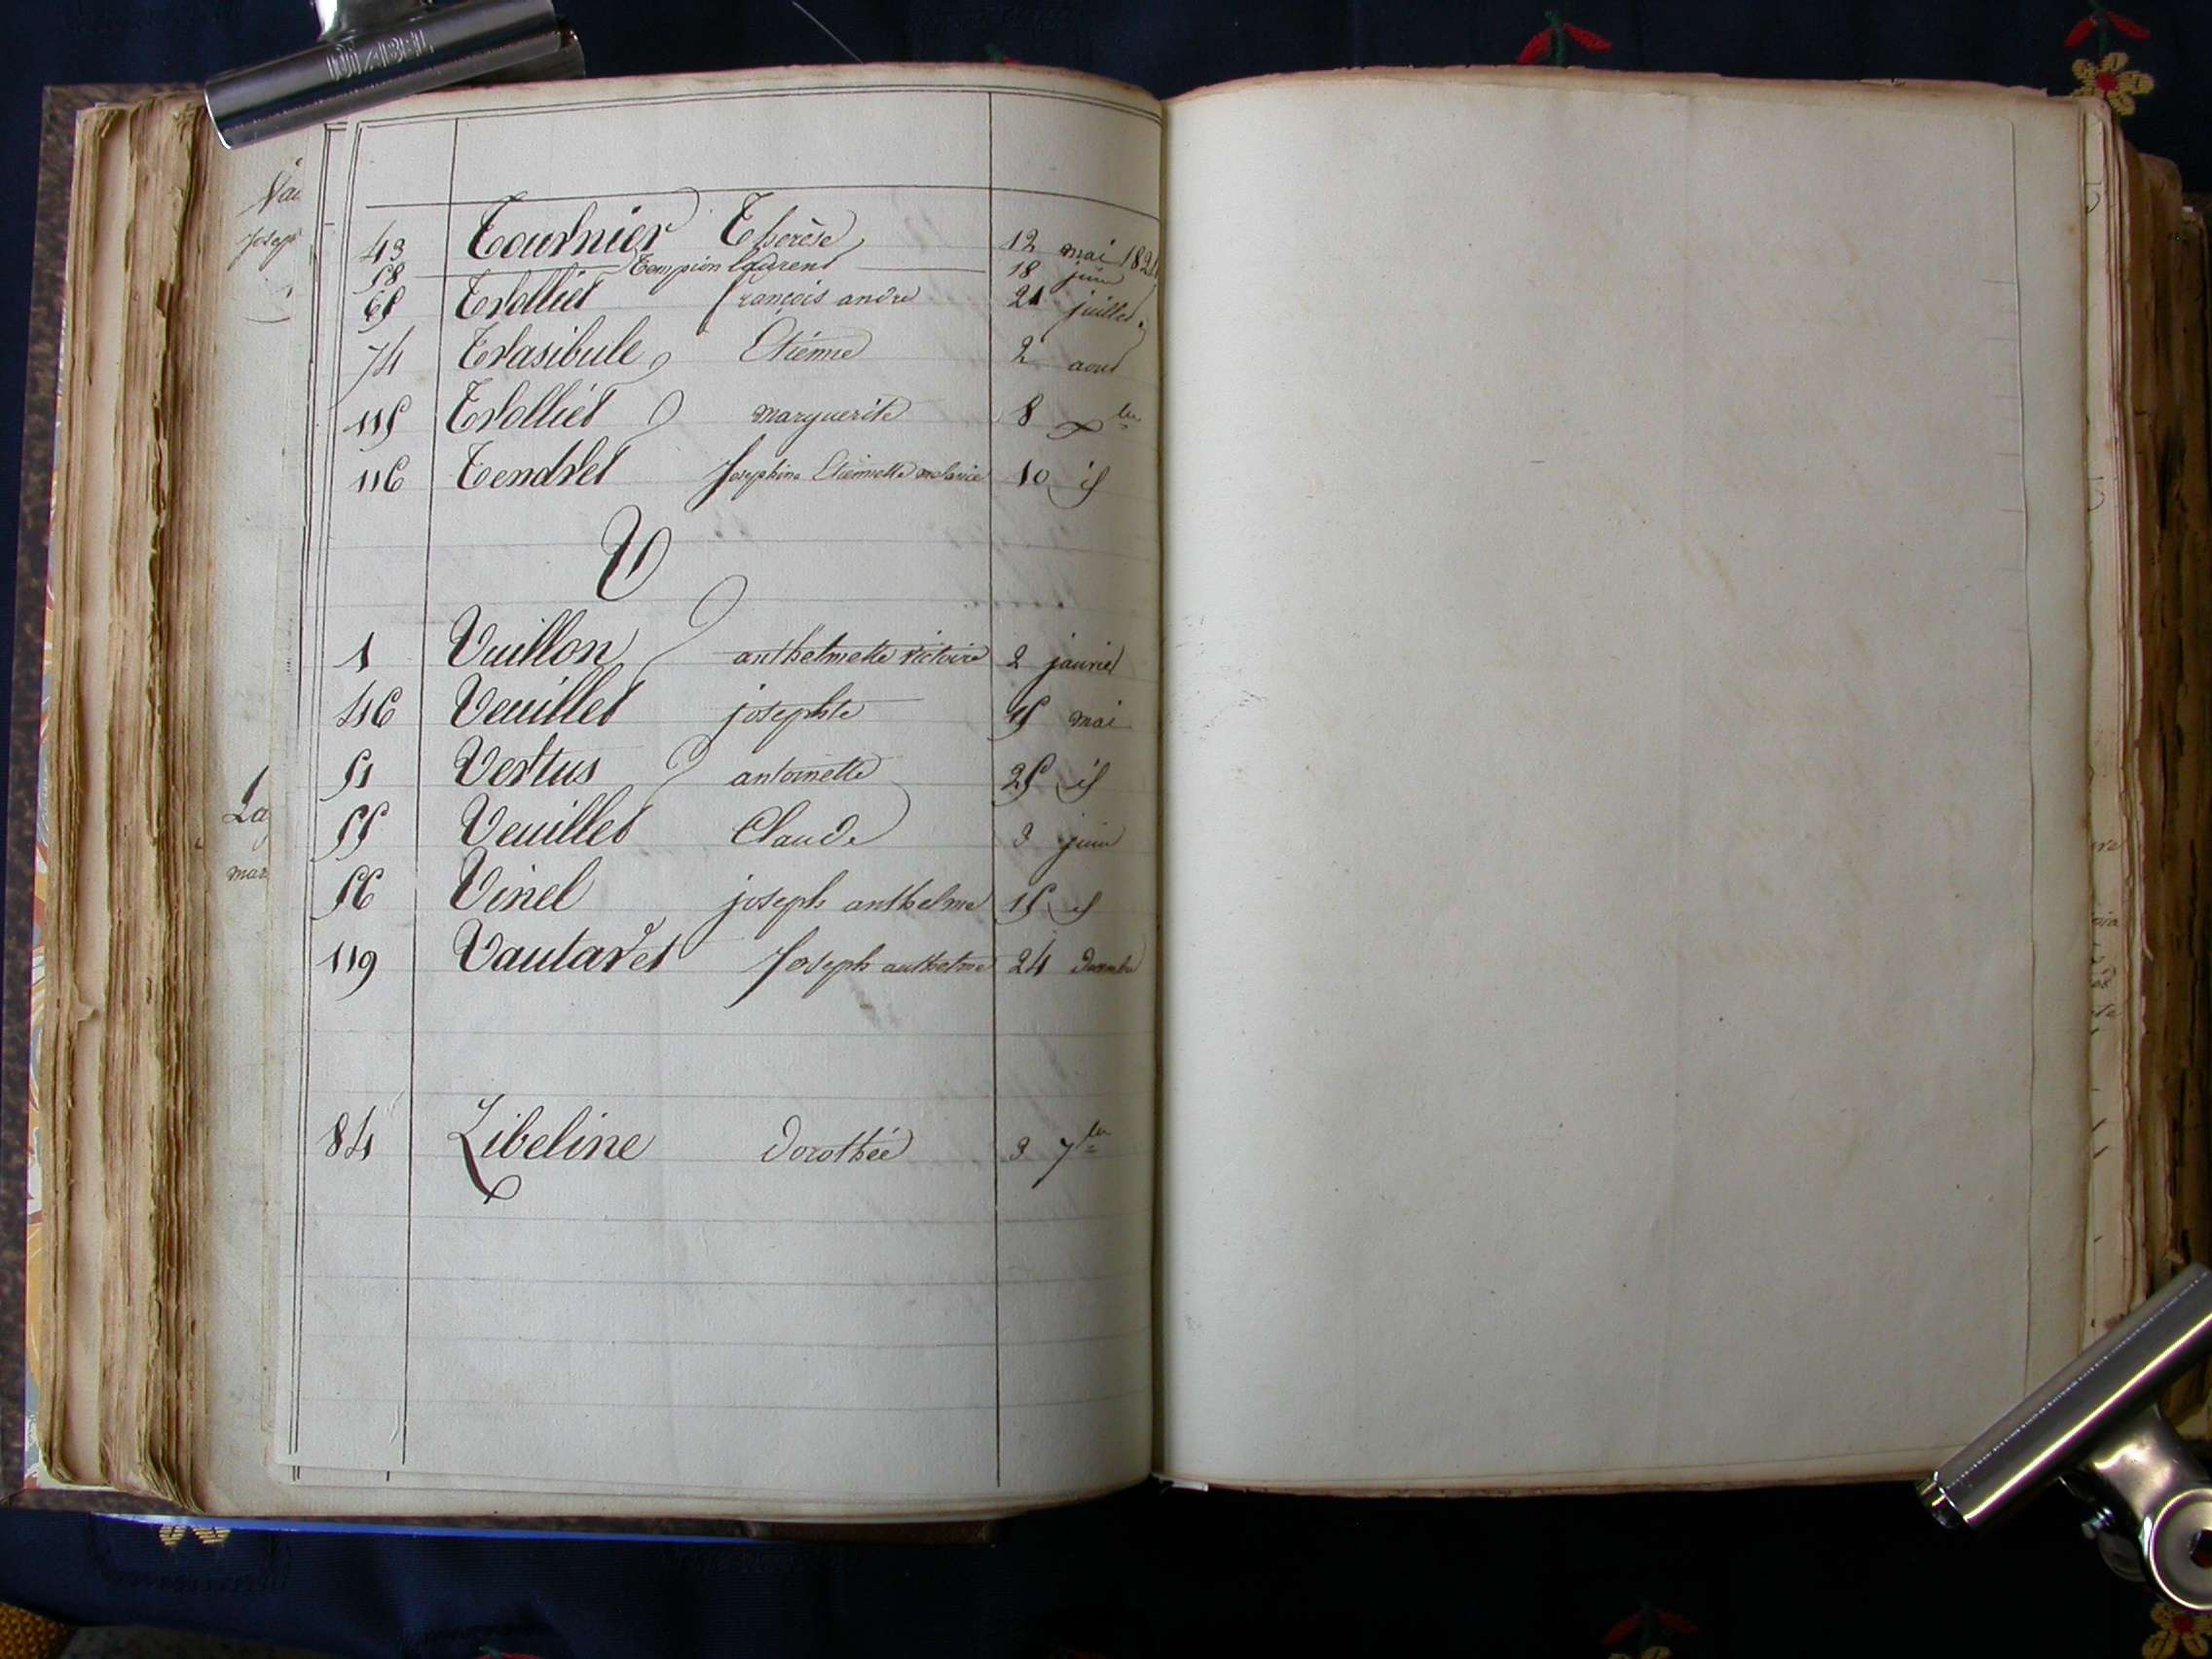 DIABEL
43 Tournier Therèse 12 mai 182
58 Tempion laurent 18 juin
65 Trolliet françois andre 21 juillet
74 Trasibule Etienne 2 aout
115 Trolliet marguerite 8 Xbre
116 Tendret Josephine Etiennette melanie 10 id
V
1 Vuillon anthelmette victoire 2 janvier
46 Veuillet josephte 15 mai
51 Vertus antoinette 25 id
55 Veuillet Claude 3 juin
56 Vinel joseph anthelme 15 id
119 Vautaret Joseph anthelme 24 Decembre
84 Zibeline Dorothée 3 7bre